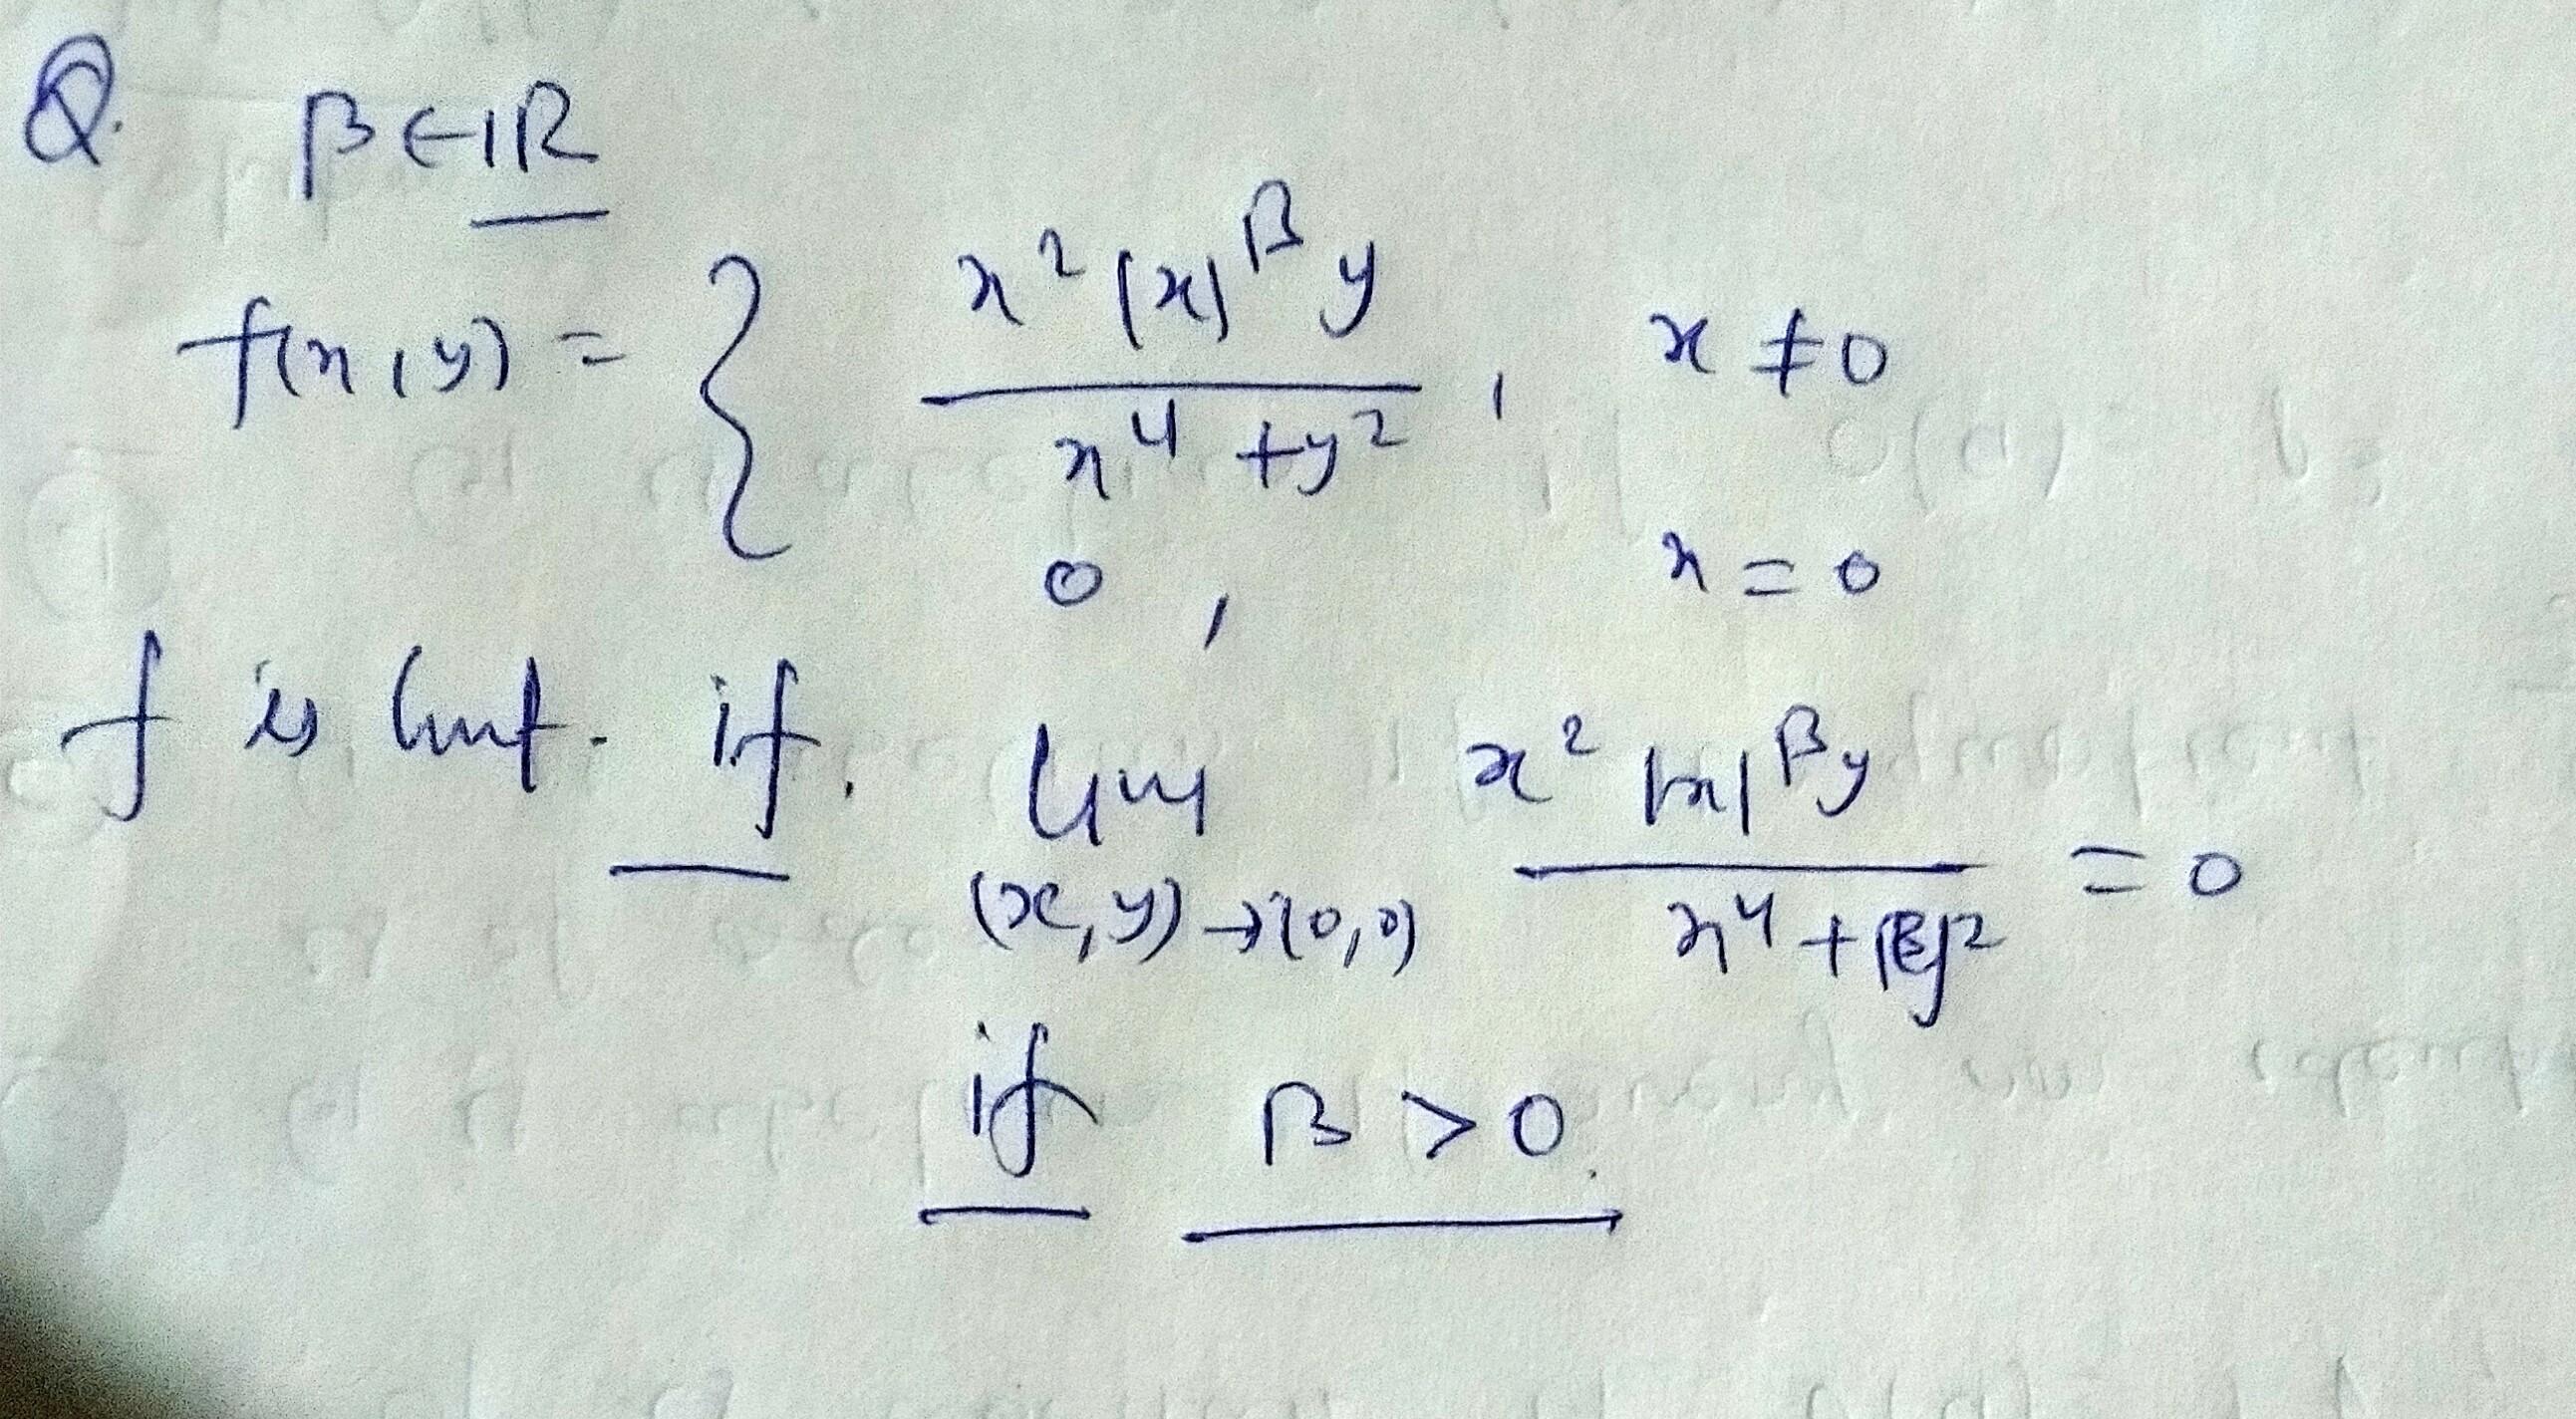 Q. β∈ℝ
f(x,y) = { x²|x|^β y / x⁴+y² , x≠0
0 , x=0
f is cont. if. lim (x,y)→(0,0) x²|x|^β y / x⁴+y² = 0
if β>0.